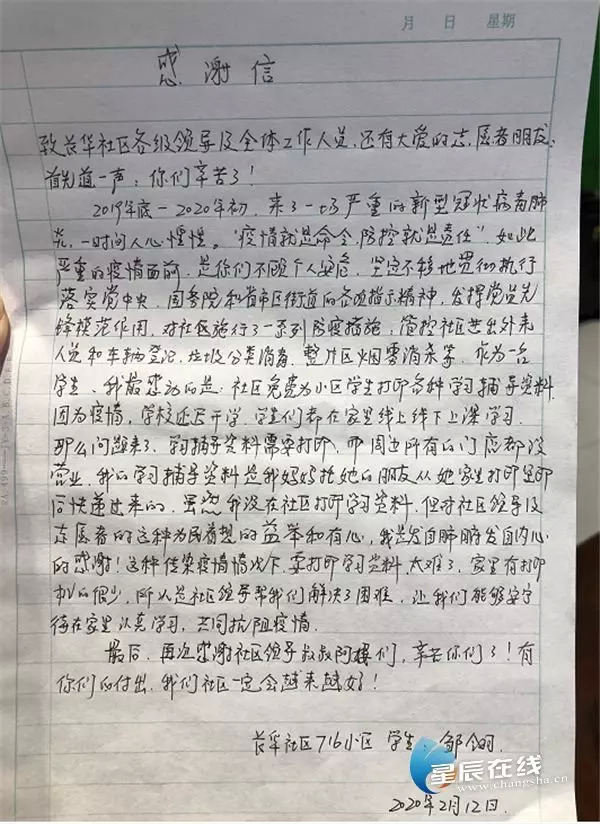 月 日 星期
感谢信
致长华社区各级领导及全体工作人员,还有大爱的志愿者朋友:
首先道一声:你们辛苦了!
2019年底-2020年初,来了一场严重的新型冠状病毒肺
炎,一时间人心惶惶。"疫情就是命令,防控就是责任",如此
严重的疫情面前,是你们不顾个人安危,坚定不移地贯彻执行
落实党中央、国务院和省市区街道的各项指示精神,发挥党员先
锋模范作用,对社区施行了一系列防疫措施,管控社区进出外来
人员和车辆登记,垃圾分类消毒,整片区烟雾消杀等,作为一名
学生、我最感动的是:社区免费为小区学生打印各种学习辅导资料.
因为疫情,学校延迟开学.学生们都在家里线上线下上课学习.
那么问题来了、学习辅导资料需要打印,可周边所有的门店都没
营业,我的学习辅导资料是我妈妈托她的朋友从她家里打印
同快递过来的.虽然我没在社区打印学习资料.但对社区领导及
志愿者的这种为民着想的益举和有心,我是发自肺腑发自内心
的感谢!这种传染疫情情况下,要打印学习资料,太难了,家里有打印
机的很少,所以是社区领导帮我们解决了困难,让我们能够安宁
待在家里认真学习,共同抗阻疫情.
最后,再次感谢社区领导叔叔阿姨们,辛苦你们了!有
你们的付出,我们社区一定会越来越好!
长华社区716小区 学生:邹
2020年2月12日.
星辰在线
www.changsha.cn